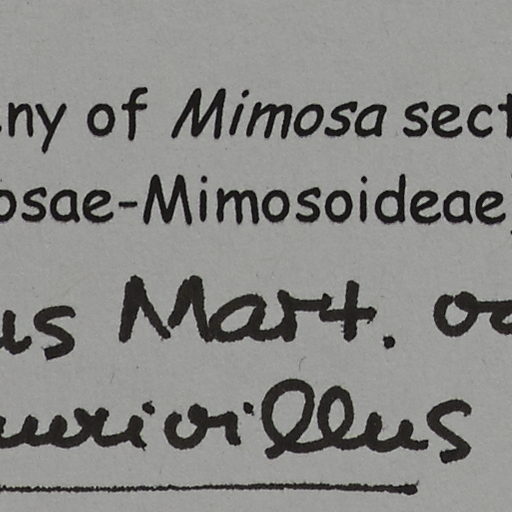 ny of Mimosa sect
osae-Mimosoideae)
us Mart. va
aurivillus